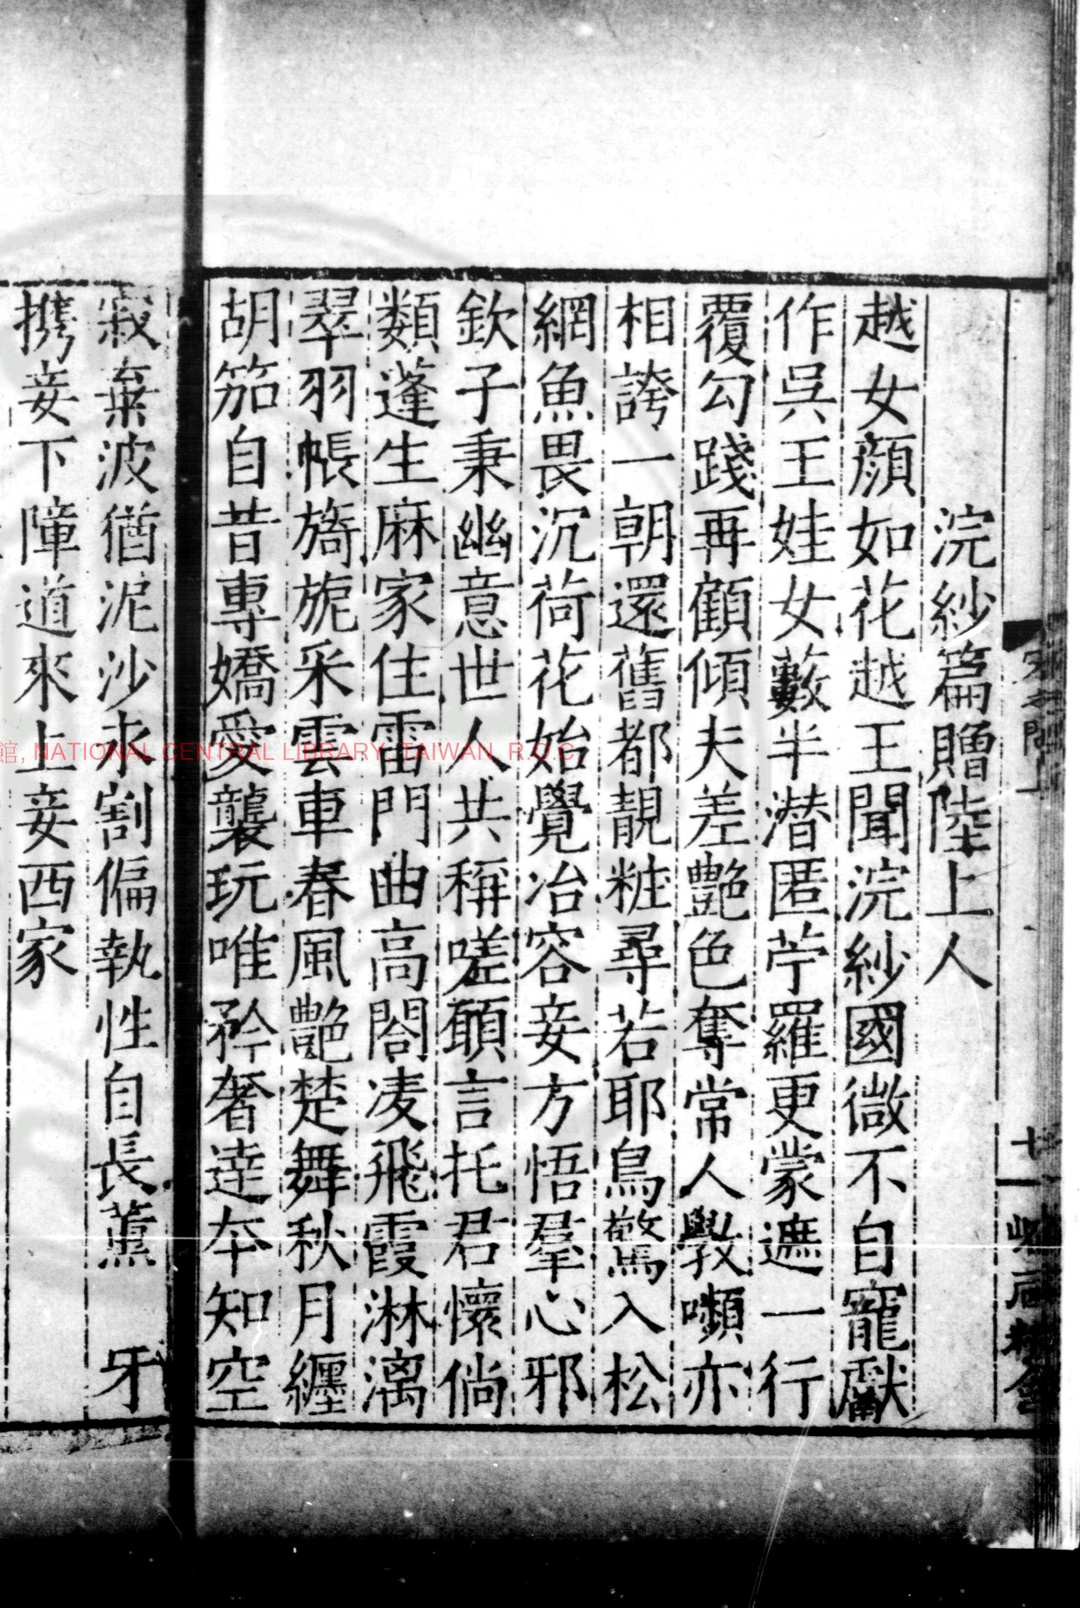 浣紗篇贈陸上人
越女顔如花越王聞浣紗國微不自寵獻
作吳王娃女藪半潜匿苧羅更蒙遮一行
覆勾踐再顧傾夫差艷色奪常人斆嚬亦
相誇一朝還舊都靚粧尋若耶鳥驚入松
網魚畏沉荷花始覺冶容妾方悟羣心邪
欽子秉幽意世人共稱嗟願言托君懷倘
類蓬生麻家住雷門曲高閣凌飛霞淋漓
翠羽帳旖旎采雲車春風艷楚舞秋月纏
胡笳自昔專嬌愛襲玩唯矜奢逹夲知空
寂棄波猶泥沙永割偏執性自長薰 牙
携妾下障道來上妾西家
館, NATIONAL CENTRAL LIBRARY, TAIWAN, R.O.C